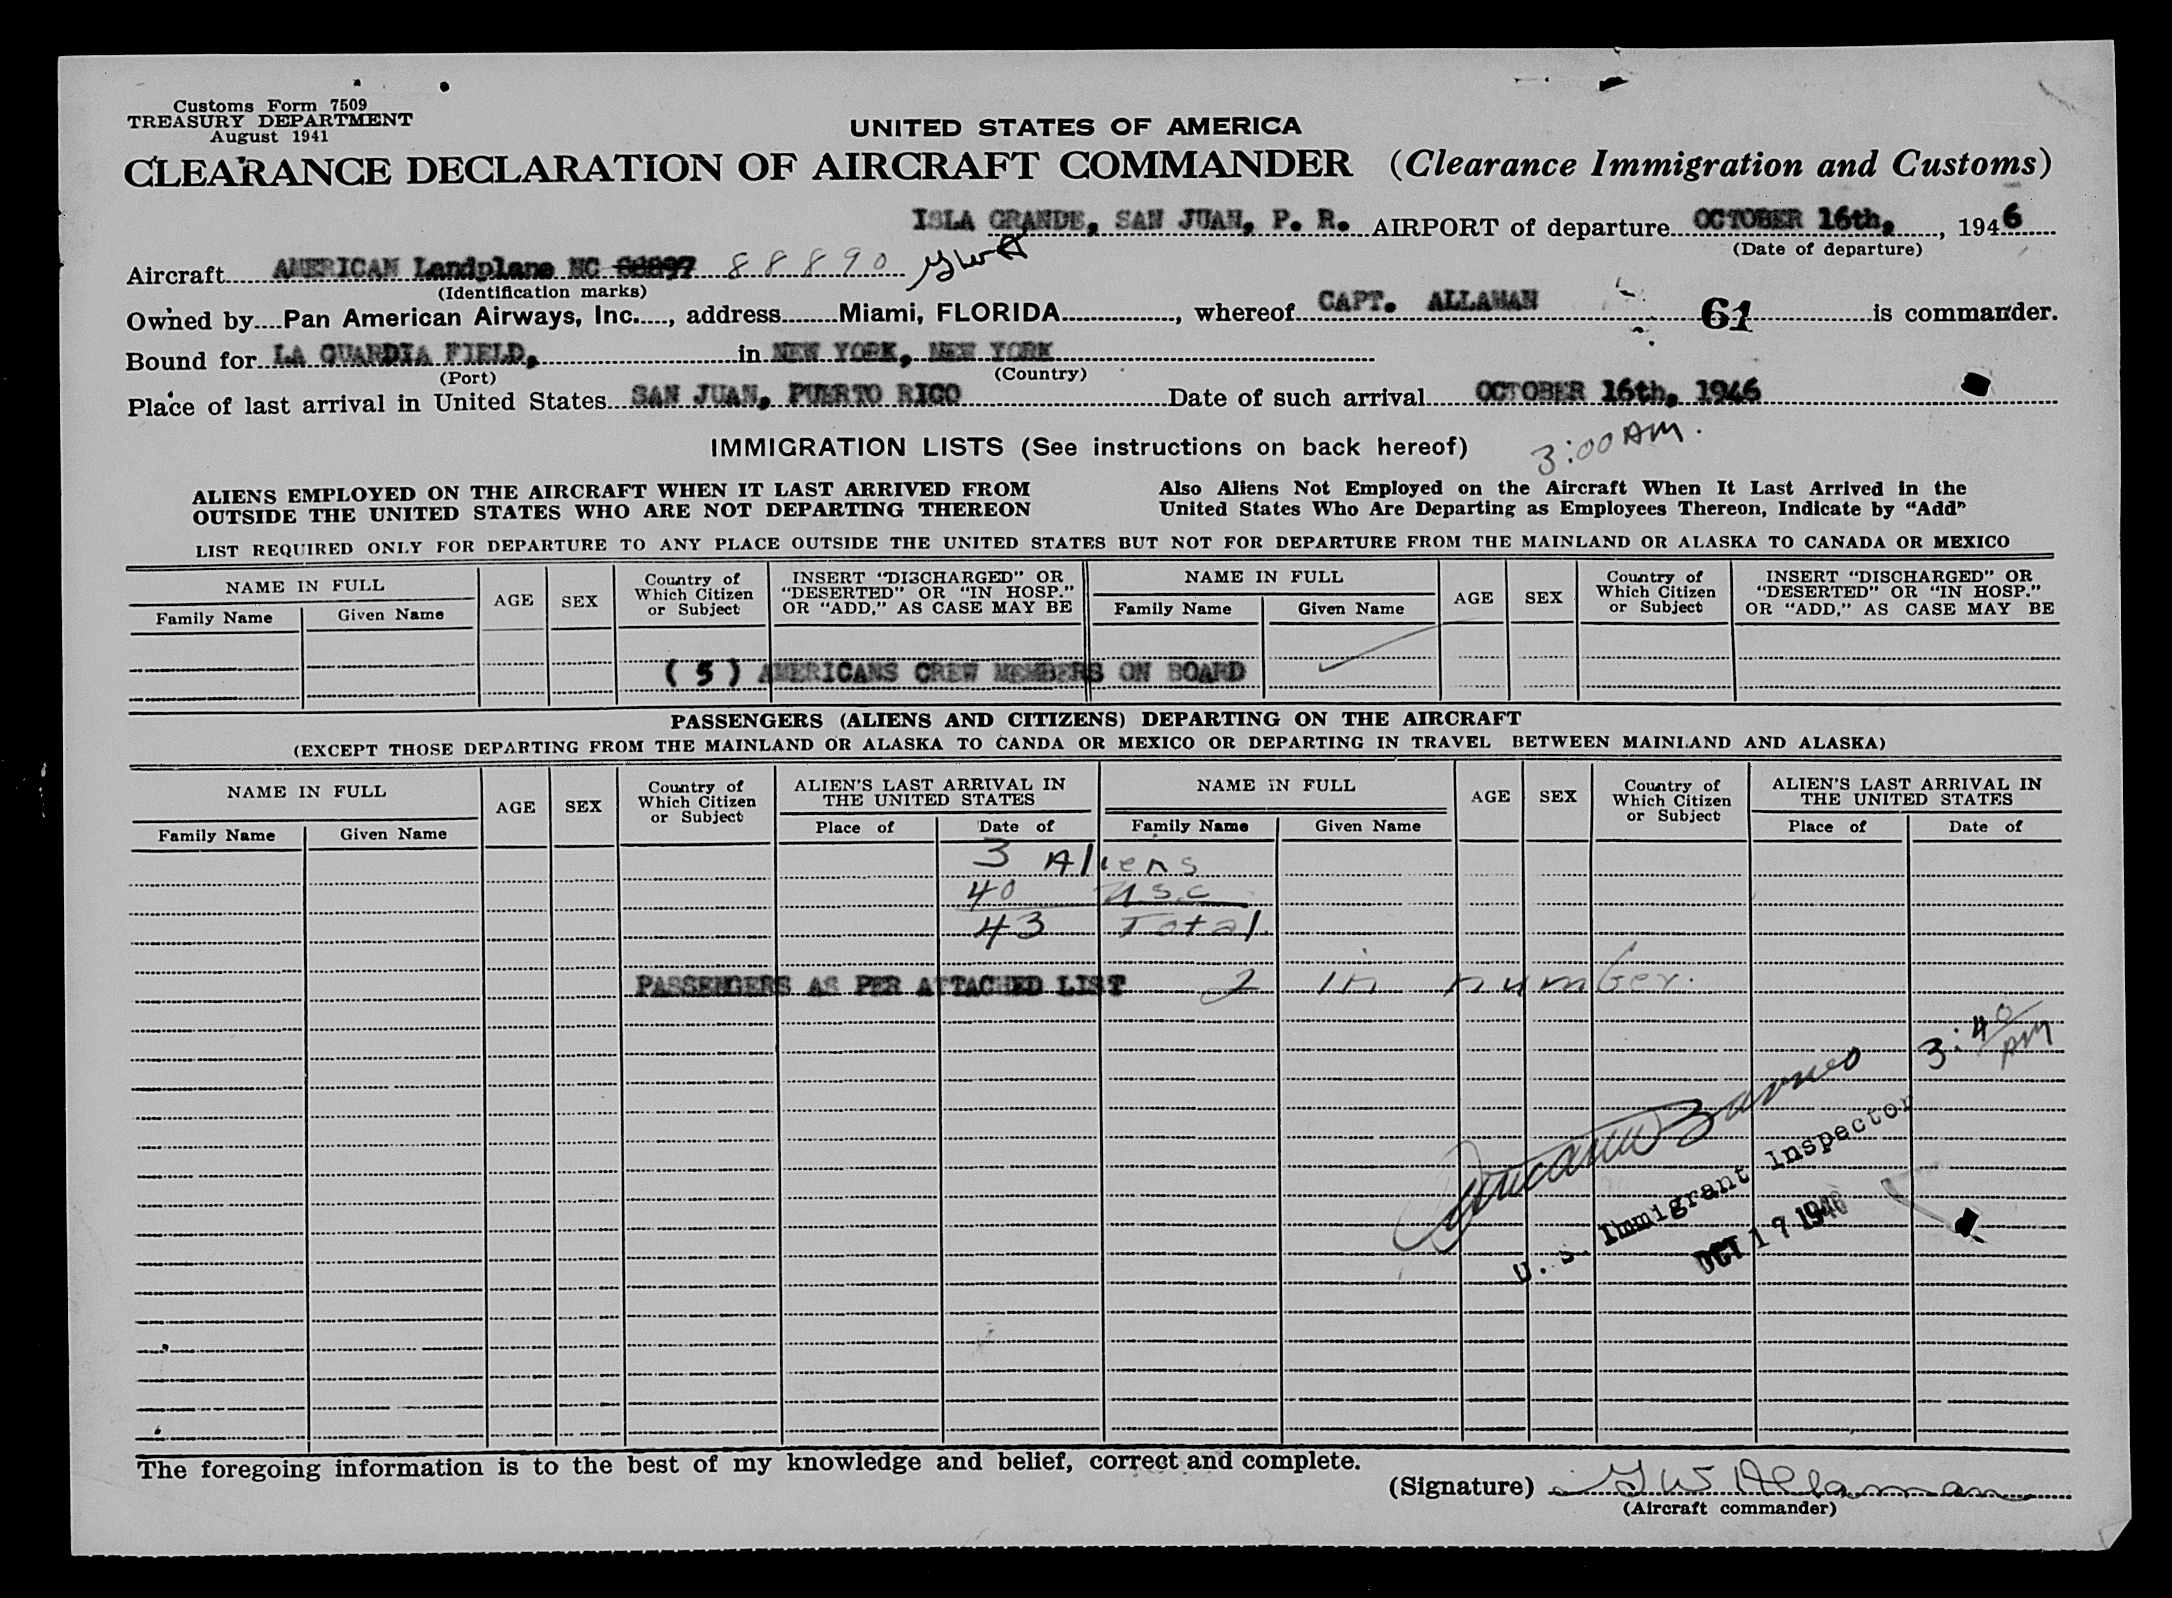 Customs Form 7509
TREASURY DEPARTMENT
August 1941
UNITED STATES OF AMERICA
CLEARANCE DECLARATION OF AIRCRAFT COMMANDER (Clearance Immigration and Customs)
ISLA GRANDE, SAN JUAN, P. R. AIRPORT of departure OCTOBER 16th, , 1946
(Date of departure)
Aircraft AMERICAN Landplane NC 88897 88890
(Identification marks)
Owned by Pan American Airways, Inc. , address Miami, FLORIDA , whereof CAPT. ALLAMAN 61 is commander.
Bound for LA GUARDIA FIELD, in NEW YORK, NEW YORK
(Port) (Country)
Place of last arrival in United States SAN JUAN, PUERTO RICO Date of such arrival OCTOBER 16th, 1946
IMMIGRATION LISTS (See instructions on back hereof) 3:00 AM.
ALIENS EMPLOYED ON THE AIRCRAFT WHEN IT LAST ARRIVED FROM Also Aliens Not Employed on the Aircraft When It Last Arrived in the
OUTSIDE THE UNITED STATES WHO ARE NOT DEPARTING THEREON United States Who Are Departing as Employees Thereon, Indicate by "Add"
LIST REQUIRED ONLY FOR DEPARTURE TO ANY PLACE OUTSIDE THE UNITED STATES BUT NOT FOR DEPARTURE FROM THE MAINLAND OR ALASKA TO CANADA OR MEXICO
NAME IN FULL AGE SEX Country of Which Citizen or Subject INSERT "DISCHARGED" OR "DESERTED" OR "IN HOSP." OR "ADD," AS CASE MAY BE NAME IN FULL AGE SEX Country of Which Citizen or Subject INSERT "DISCHARGED" OR "DESERTED" OR "IN HOSP." OR "ADD," AS CASE MAY BE
Family Name Given Name Family Name Given Name
( 5 ) AMERICANS CREW MEMBERS ON BOARD
PASSENGERS (ALIENS AND CITIZENS) DEPARTING ON THE AIRCRAFT
(EXCEPT THOSE DEPARTING FROM THE MAINLAND OR ALASKA TO CANDA OR MEXICO OR DEPARTING IN TRAVEL BETWEEN MAINLAND AND ALASKA)
NAME IN FULL AGE SEX Country of Which Citizen or Subject ALIEN'S LAST ARRIVAL IN THE UNITED STATES NAME IN FULL AGE SEX Country of Which Citizen or Subject ALIEN'S LAST ARRIVAL IN THE UNITED STATES
Family Name Given Name Place of Date of Family Name Given Name Place of Date of
3 Aliens
40 U.S.C
43 Total.
PASSENGERS AS PER ATTACHED LIST 2 in number.
3:40 AM
U. S. Immigrant Inspector
OCT 17 1946
The foregoing information is to the best of my knowledge and belief, correct and complete.
(Signature) G W Allaman
(Aircraft commander)